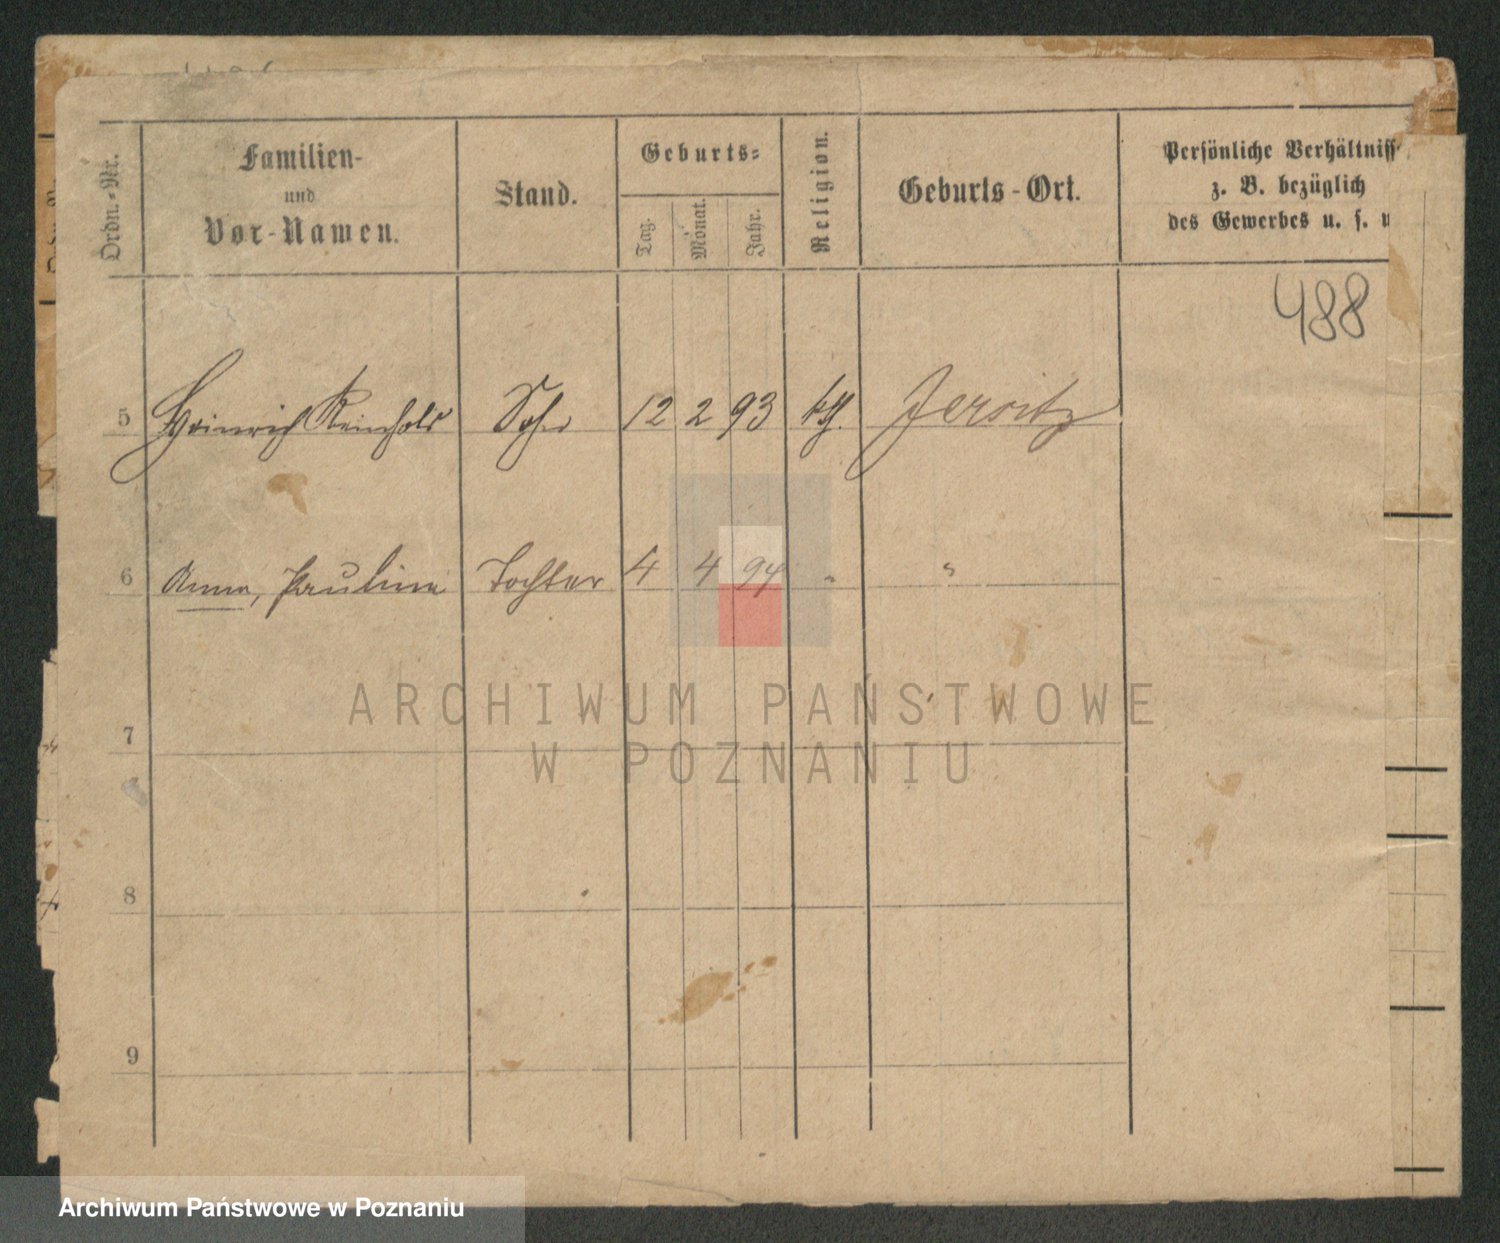 Ordn.-Nr.
Familien-
und
Vor-Namen.
Stand.
Geburts-
Tag.
Monat.
Jahr.
Religion.
Geburts-Ort.
Persönliche Verhältniss
z. B. bezüglich
des Gewerbes u. s. w
488
5 Heinrich Reinhold Sohn 12 2 93 kth. Jersitz
6 Anna, Pauline Tochter 4 4 94 " "
ARCHIWUM PAŃSTWOWE
W POZNANIU
7
8
9
Archiwum Państwowe w Poznaniu